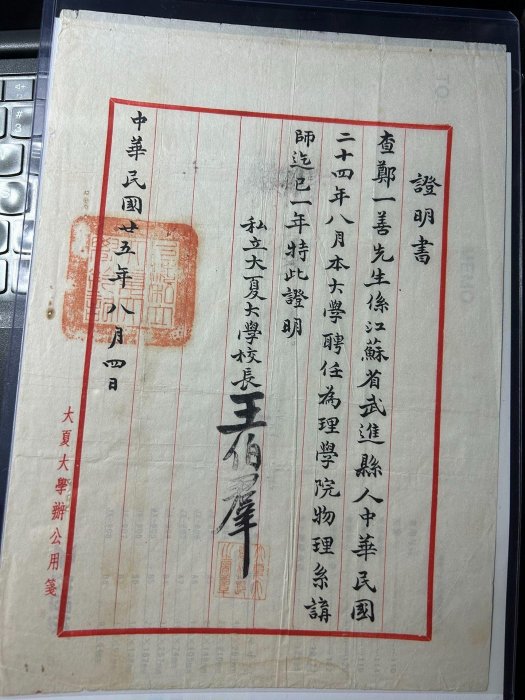 證明書
查鄭一善先生係江蘇省武進縣人中華民國
二十四年八月本大學聘任為理學院物理系講
師迄已一年特此證明
私立大夏大學校長王伯羣
中華民國廿五年八月四日
大夏大學辦公用箋